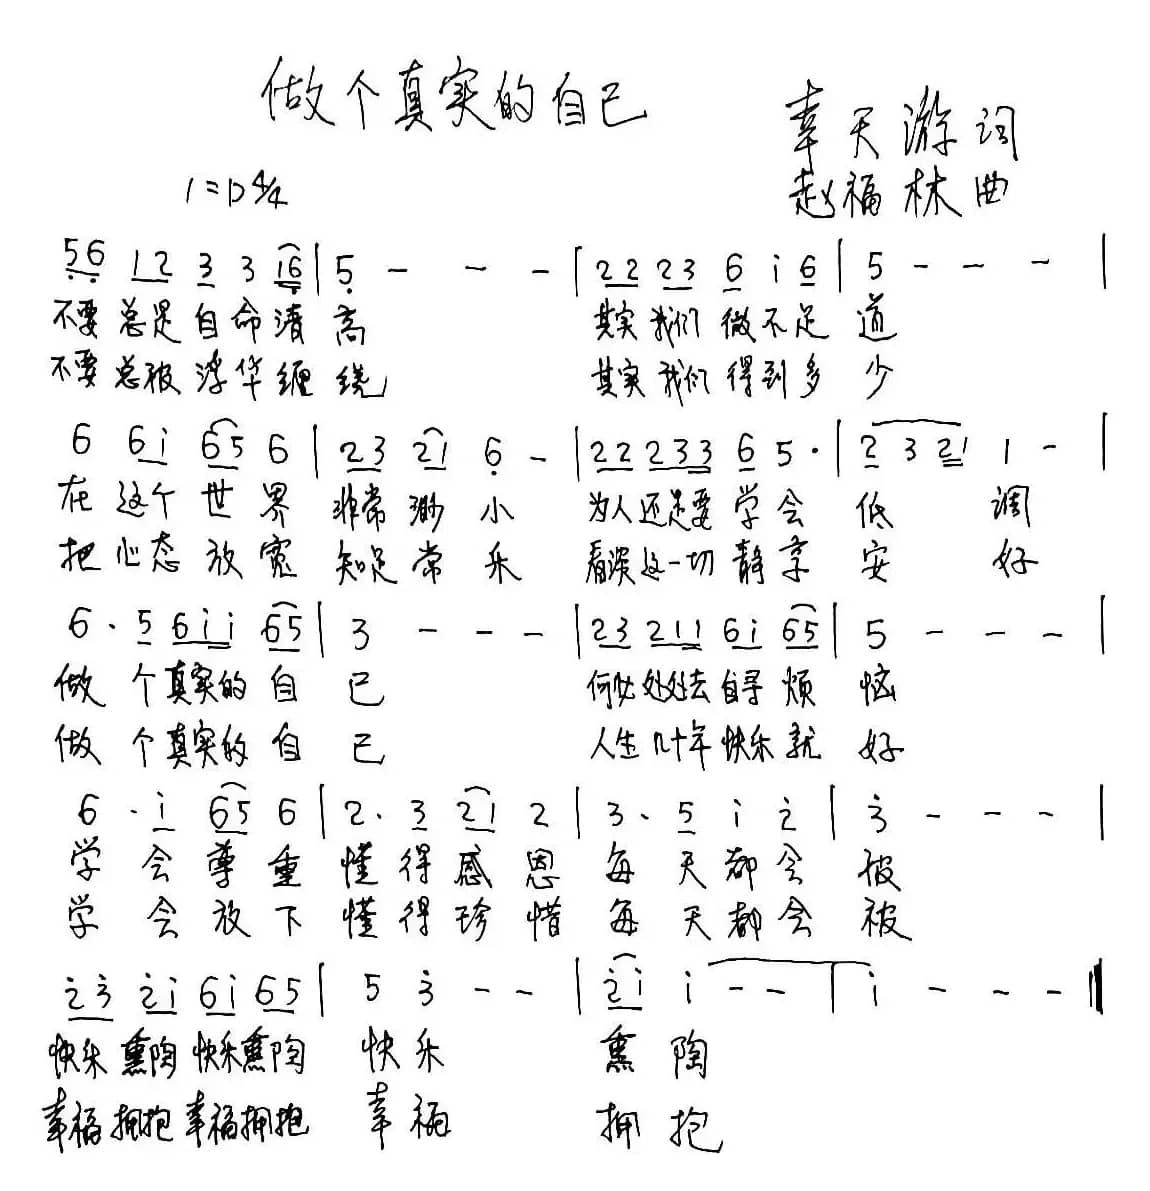 做个真实的自己
幸天游词
赵福林曲
1=D 4/4
5̣6̣ 12 3 3 16̣ | 5̣ - - - | 22 23 6 i 6 | 5 - - - |
不要总是自命清高 其实我们微不足道
不要总被浮华缠绕 其实我们得到多少
6 6i 65 6 | 23 21 6̣ - | 22 233 6 5· | 2 3 21 1 - |
在这个世界 非常渺小 为人还是要学会低调
把心态放宽 知足常乐 看淡这一切静享安好
6· 5 6ii 65 | 3 - - - | 23 211 6i 65 | 5 - - - |
做个真实的自己 何必处处去自寻烦恼
做个真实的自己 人生几十年快乐就好
6· i 65 6 | 2· 3 21 2 | 3· 5 i 2̇ | 3̇ - - - |
学会尊重 懂得感恩 每天都会被
学会放下 懂得珍惜 每天都会被
2̇3̇ 2̇i 6i 65 | 5 3̇ - - | 2̇i i - - | i - - - ‖
快乐熏陶快乐熏陶 快乐 熏陶
幸福拥抱幸福拥抱 幸福 拥抱